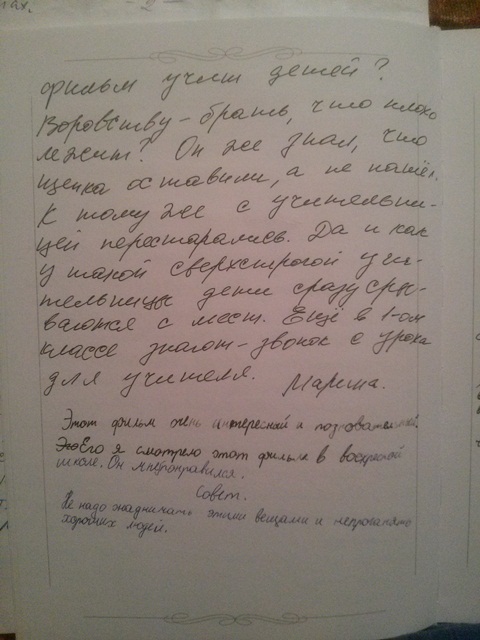 - 2 -
фильм учит детей?
Воровству - брать, что плохо
лежит? Он же знал, что
щенка оставили, а не нашёл.
К тому же с учительни-
цей перестарались. Да и как
у такой сверхстрогой учи-
тельницы дети сразу сры-
ваются с мест. Ещё в 1-ом
классе знают - звонок с урока
для учителя. Марина.
Этот фильм очень интересной и познавательный.
Его я смотрело этот фильм в воскресной
школе. Он мне понравился.
Совет.
Не надо жадничать этими вещами и
хороших людей.